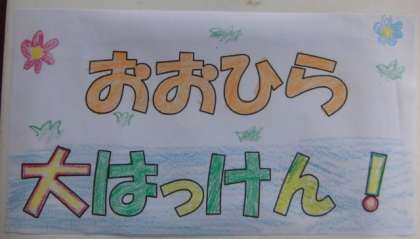 おおひら
大はっけん！